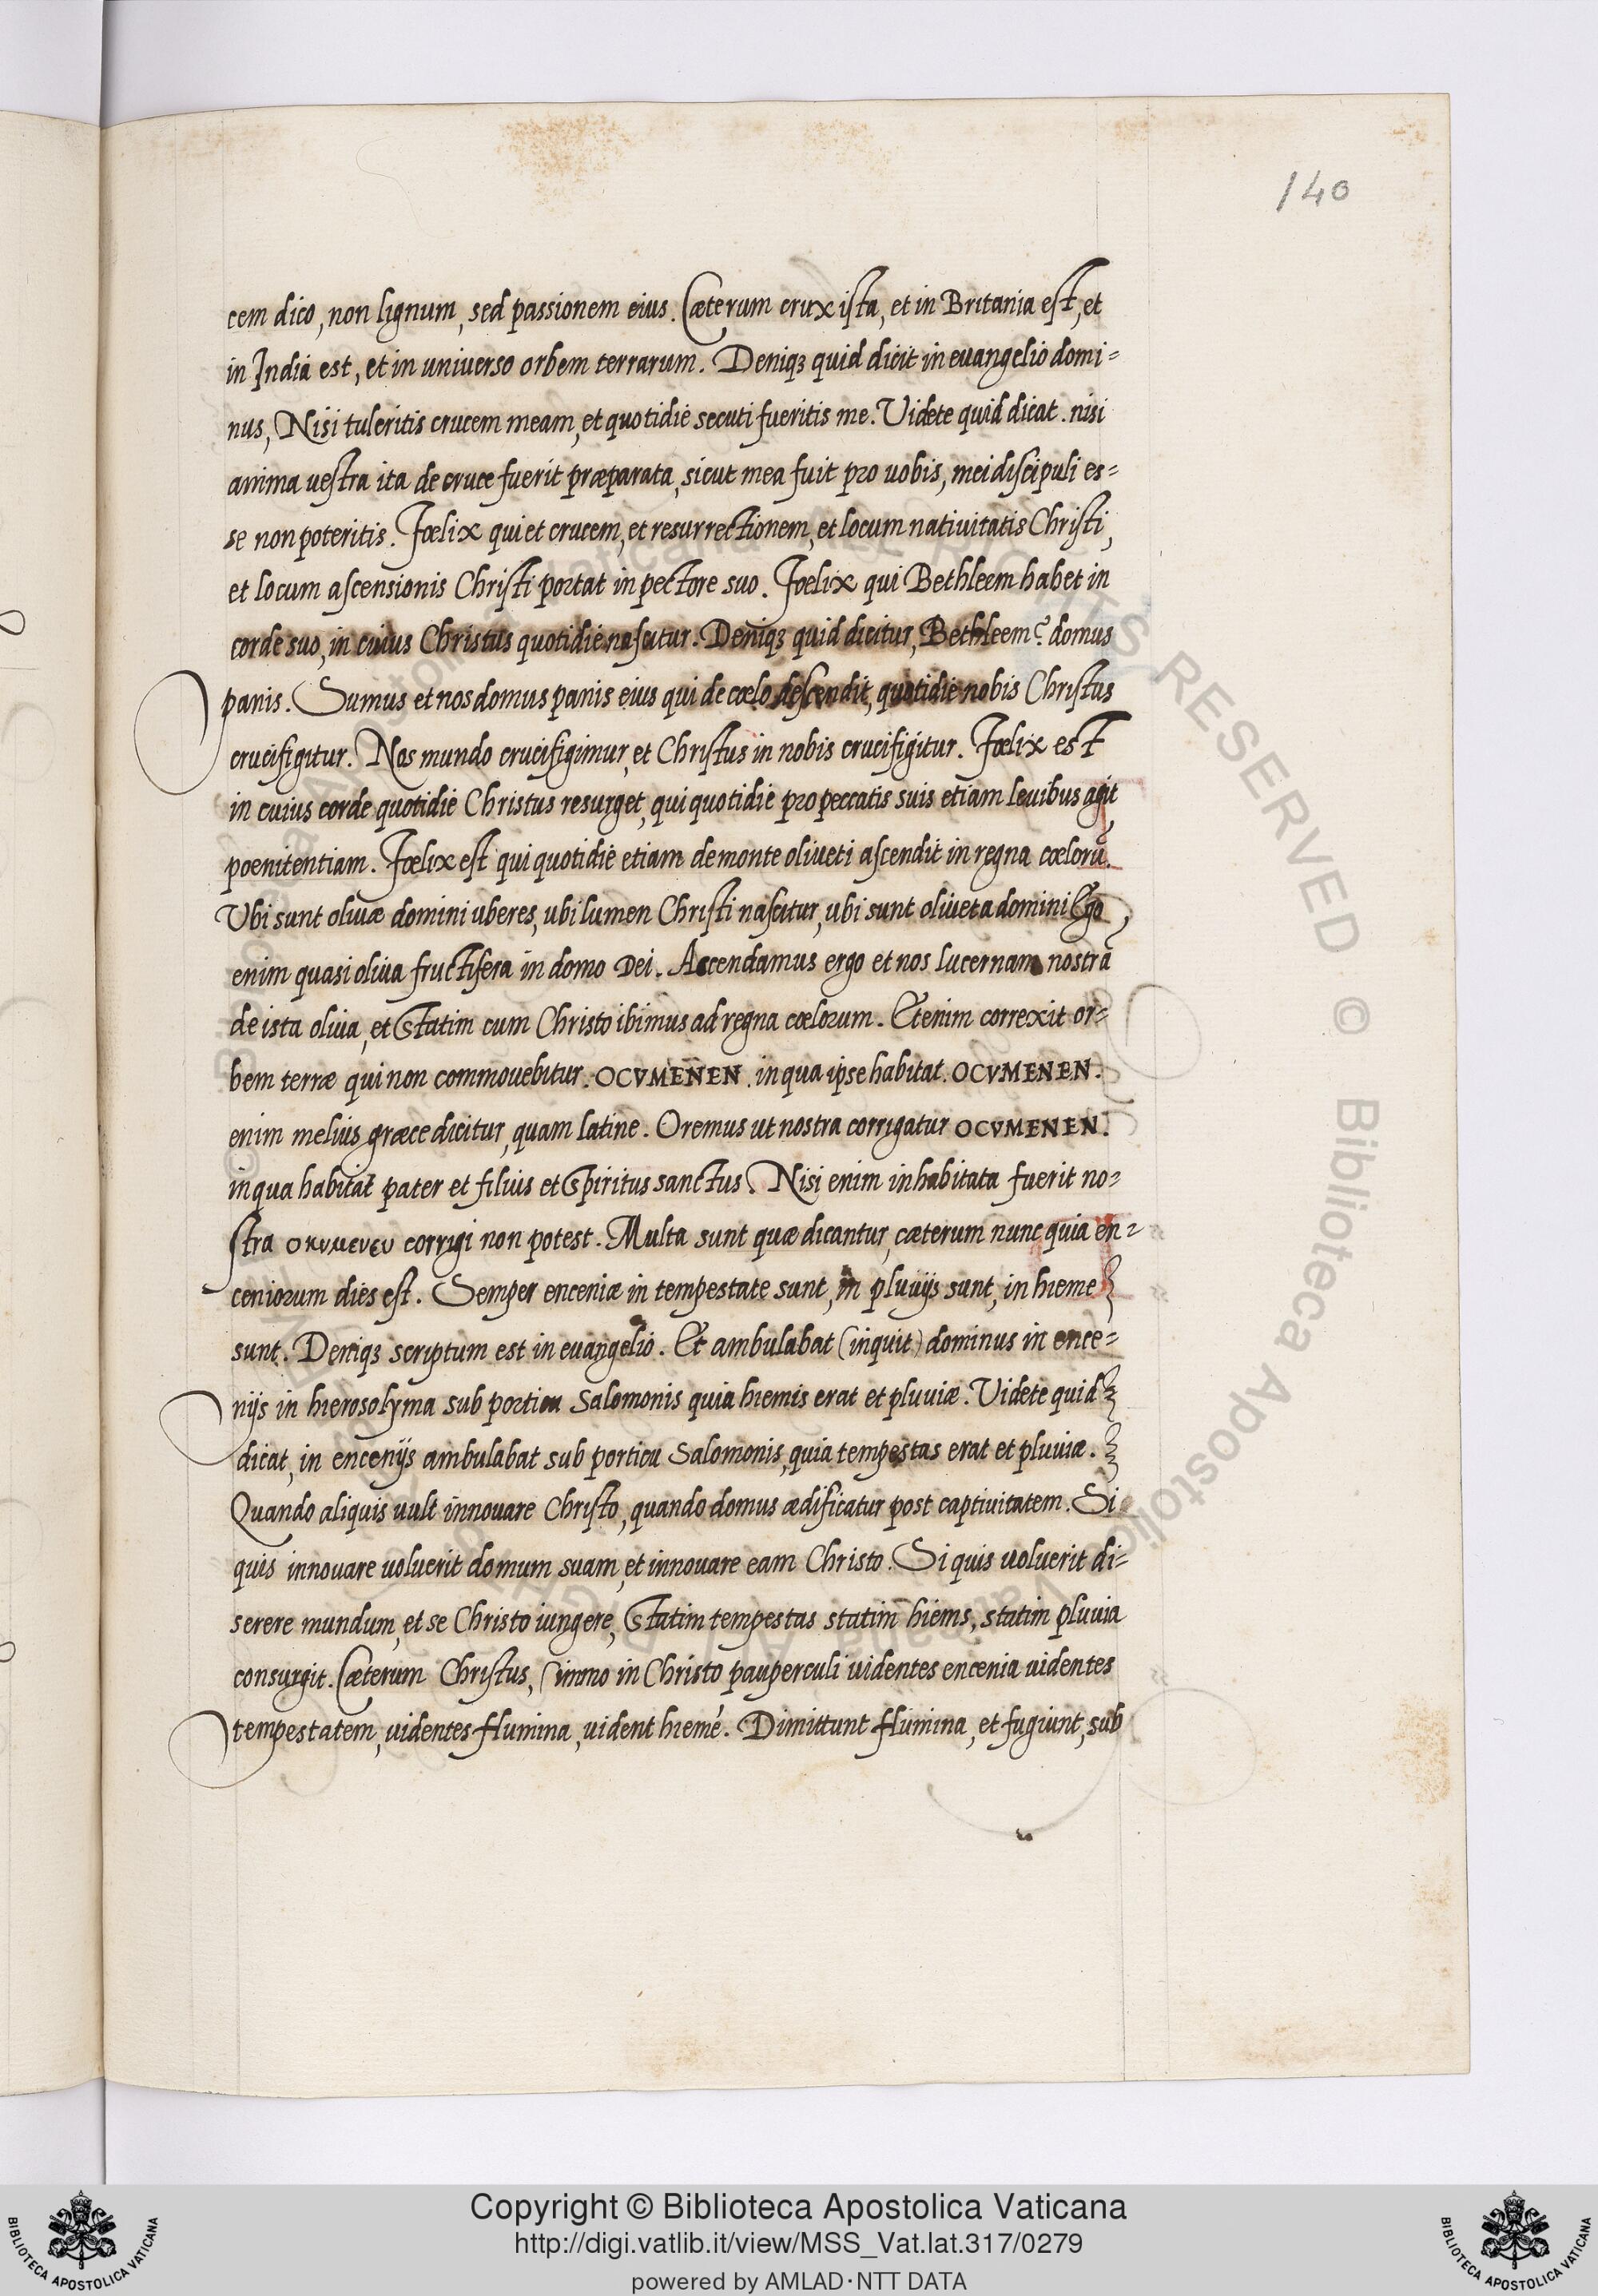 140
cem dico, non lignum, sed passionem eius. Cæterum crux ista, et in Britania est, et
in India est, et in universo orbem terrarum. Deniqȝ quid dicit in evangelio domi=
nus, Nisi tuleritis crucem meam, et quotidie secuti fueritis me. Videte quid dicat. nisi
anima vestra ita de cruce fuerit præparata, sicut mea fuit pro uobis, mei discipuli es=
se non poteritis. Fœlix qui et crucem, et resurrectionem, et locum nativitatis Christi,
et locum ascensionis Christi portat in pectore suo. Fœlix qui Bethleem habet in
corde suo, in cuius Christus quotidie nascitur. Deniqȝ quid dicitur, Bethleem? domus
panis. Sumus et nos domus panis eius qui de cœlo descendit, quotidie nobis Christus
crucifigitur. Nos mundo crucifigimur, et Christus in nobis crucifigitur. Fœlix est
in cuius corde quotidie Christus resurget, qui quotidie pro peccatis suis etiam levibus agit
poenitentiam. Fœlix est qui quotidie etiam de monte oliueti ascendit in regna cœlorū.
Vbi sunt olivæ domini uberes, ubi lumen Christi nascitur, ubi sunt oliveta domini Ego
enim quasi oliua fructifera in domo Dei. Accendamus ergo et nos lucernam nostrā
de ista oliua, et statim cum Christo ibimus ad regna cœlorum. Etenim correxit or=
bem terræ qui non commouebitur. OCVMENEN. in qua ipse habitat. OCVMENEN.
enim melius græce dicitur, quam latine. Oremus ut nostra corrigatur OCVMENEN.
in qua habitat pater et filius et spiritus sanctus. Nisi enim inhabitata fuerit no=
stra οκυμενευ corrigi non potest. Multa sunt quæ dicantur, cæterum nunc quia en=
ceniorum dies est. Semper enceniæ in tempestate sunt, in pluvijs sunt, in hieme
sunt. Deniqȝ scriptum est in evangelio. Et ambulabat (inquit) dominus in ence=
nijs in hierosolyma sub porticu Salomonis quia hiemis erat et pluviæ. Videte quid
dicat, in encenijs ambulabat sub porticu Salomonis, quia tempestas erat et pluviæ.
Quando aliquis uult innouare Christo, quando domus ædificatur post captivitatem. Si
quis innouare uoluerit domum suam, et innouare eam Christo. Si quis uoluerit di=
serere mundum, et se Christo iungere, statim tempestas statim hiems, statim pluuia
consurgit. Cæterum Christus, (immo in Christo pauperculi uidentes encenia uidentes
tempestatem, uidentes flumina, uident hiemē. Dimittunt flumina, et fugiunt, sub
Copyright © Biblioteca Apostolica Vaticana
http://digi.vatlib.it/view/MSS_Vat.lat.317/0279
powered by AMLAD·NTT DATA
BIBLIOTECA APOSTOLICA VATICANA
BIBLIOTECA APOSTOLICA VATICANA